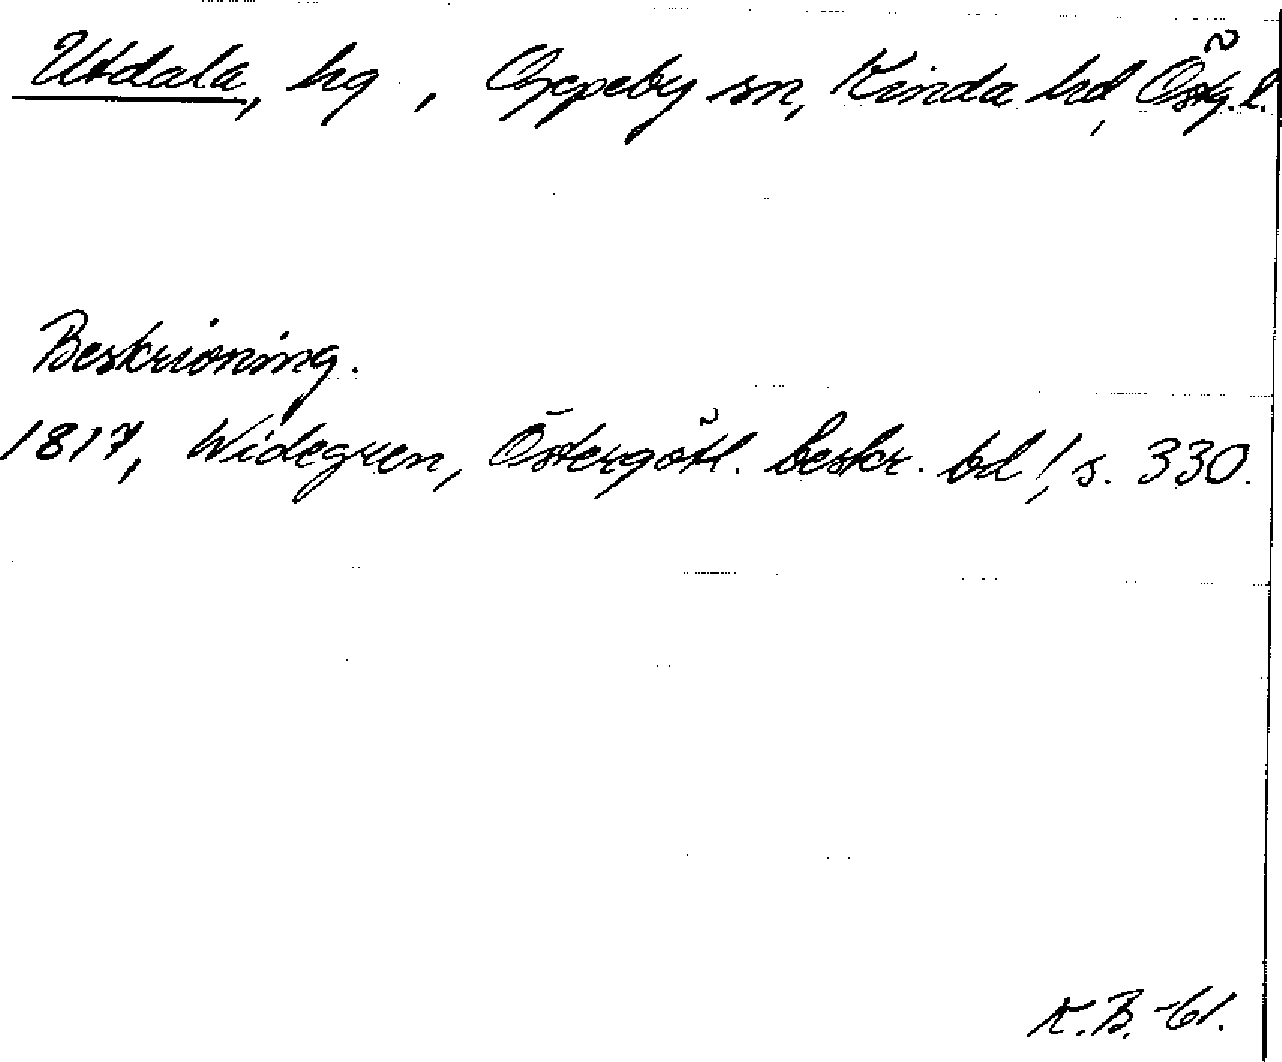 Utdala, hg, Oppeby sn, Kinda hd, Östg. l.
Beskrivning.
1817, Widegren, Östergötl. beskr. bd 1, s. 330.
K.B. -61.